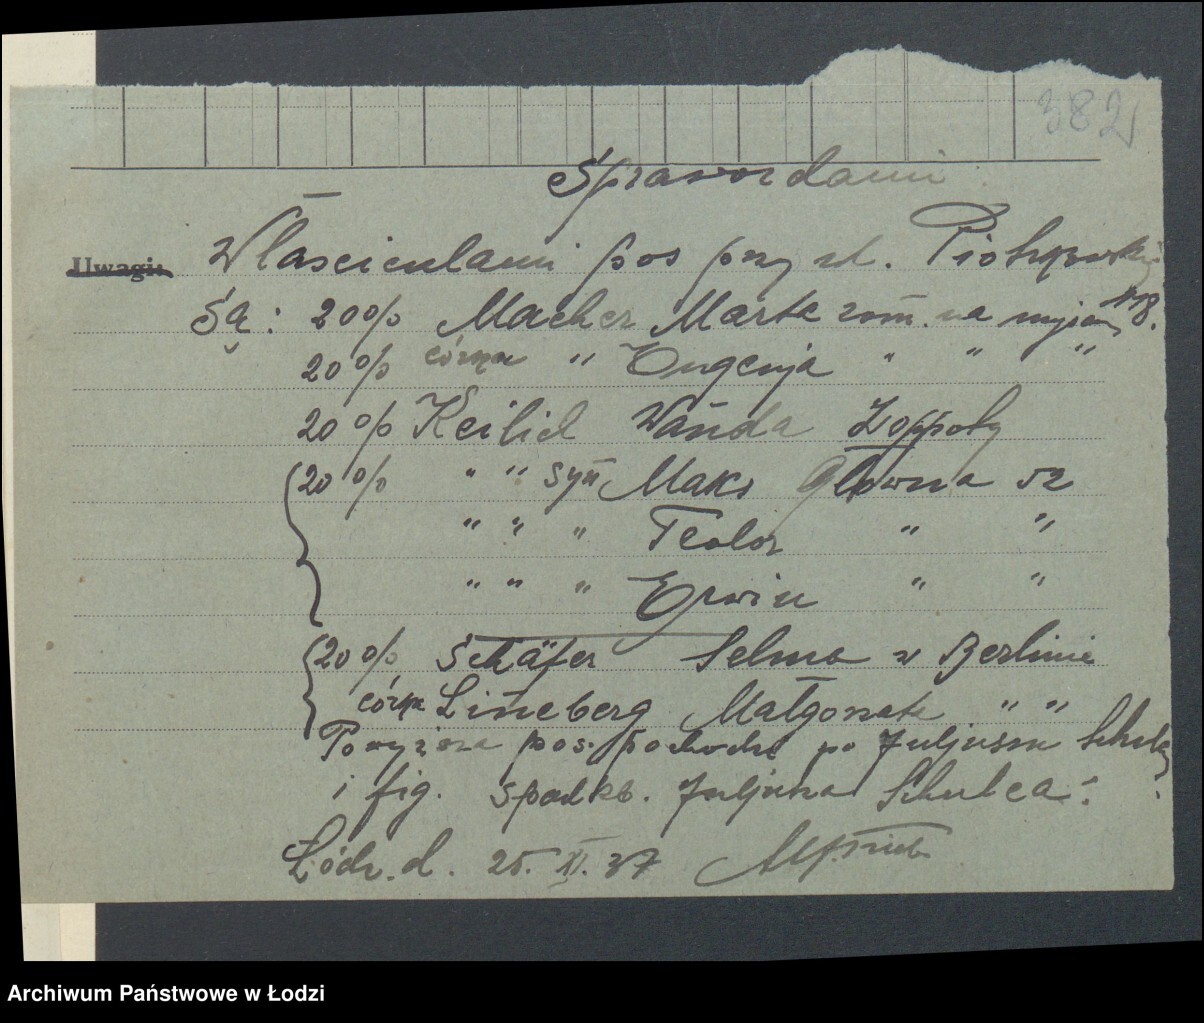 382
Sprawozdanie
Uwagi:
Właścicielami pos przy ul. Piotrkowskiej
Są: 20% Macher Marta zam. na miejscu 118.
20% córka " Eugenja " " "
20% Keilich Wanda Zoppoty
20% " " syn Maks Główna 52
" " " Teodor " "
" " " Erwin " "
20% Schäfer Selma w Berlinie
córka Lineberg Małgorzata " "
Powyższa pos. pochodzi po Juljuszu Schulcu
i fig. spadkb. Juljusza Schulca.
Łódź. d. 25. XI. 37
Archiwum Państwowe w Łodzi